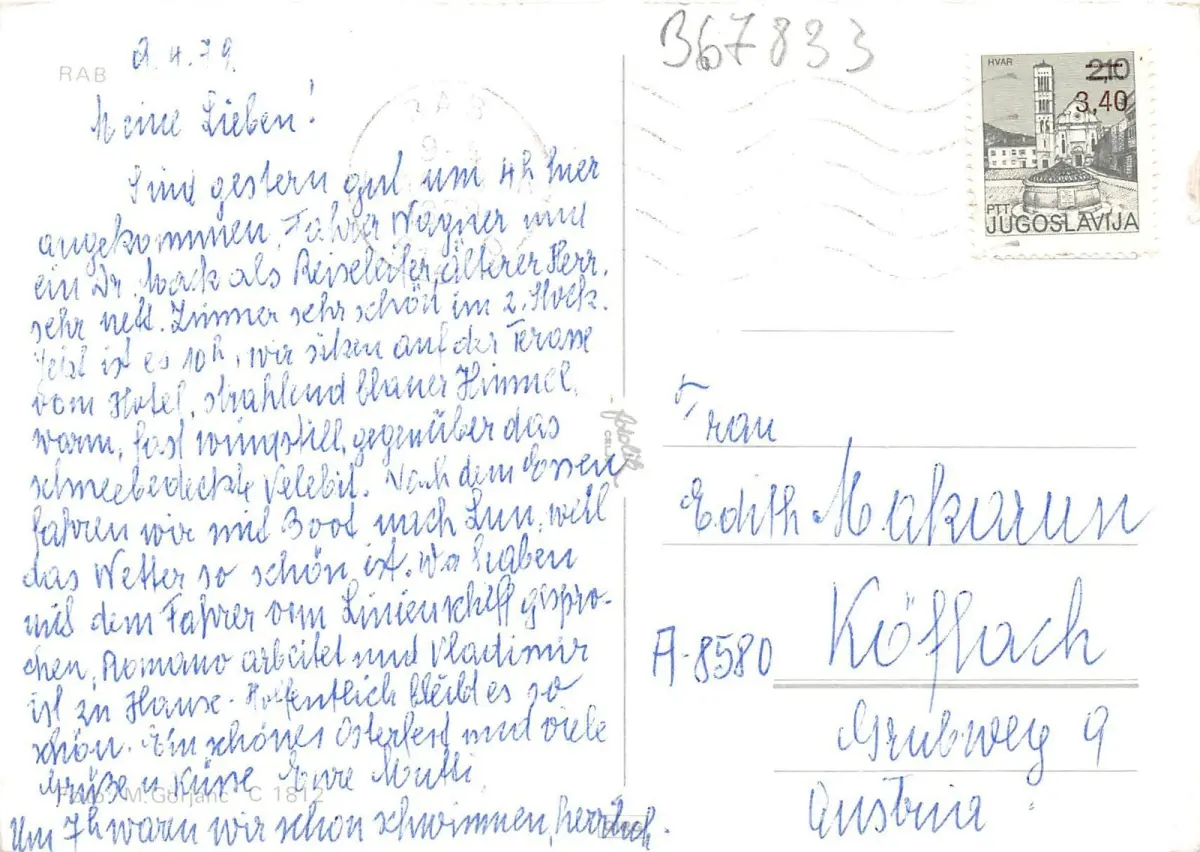 RAB
9.4.79.
Meine Lieben!
Sind gestern gut um 4h hier
angekommen, Fahrer Wagner und
ein Dr. Mack als Reiseleiter, älterer Herr,
sehr nett. Zimmer sehr schön im 2. Stock.
Jetzt ist es 10h, wir sitzen auf der Terasse
vom Hotel, strahlend blauer Himmel,
warm, fast windstill, gegenüber das
schneebedeckte Velebit. Nach dem Essen
fahren wir mit Boot nach Lun, weil
das Wetter so schön ist. Wir haben
mit dem Fahrer vom Linienschiff gespro-
chen, Romano arbeitet und Vladimir
ist zu Hause. Hoffentlich bleibt es so
schön. Ein schönes Osterfest und viele
Grüße u Küsse Eure Mutti
Foto: M. Gorjanc C 1812
Um 7h waren wir schon schwimmen, herrlich.
fotolik
B67833
RAB
HVAR
2,10
3,40
PTT
JUGOSLAVIJA
Frau
Edith
A-8580 Köflach
Grubweg 9
Austria